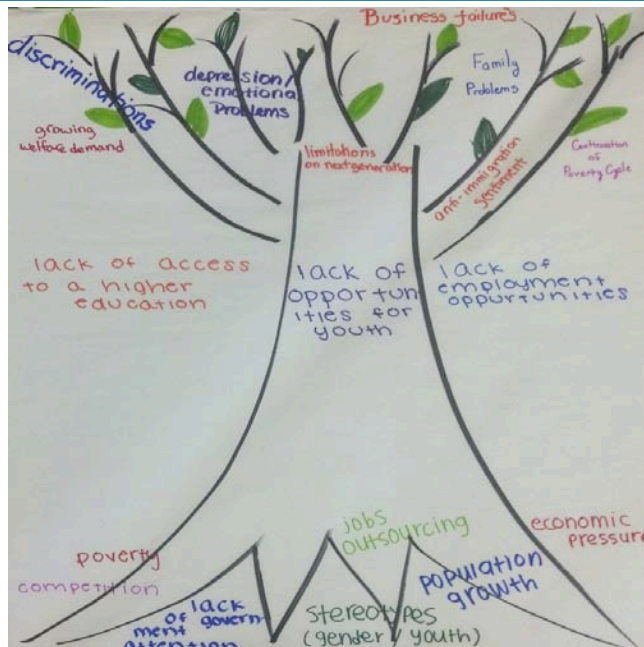 Business failures
discriminations
depression/
emotional
Problems
Family
Problems
growing
welfare demand
limitations
on next generation
anti-immigration
sentiment
Continuation
of
Poverty Cycle
lack of access
to a higher
education
lack of
opportun
ities for
youth
lack of
employment
oppurtunities
jobs
outsourcing
economic
pressure
poverty
competition
population
growth
lack
of govern
ment
attention
stereotypes
(gender/youth)